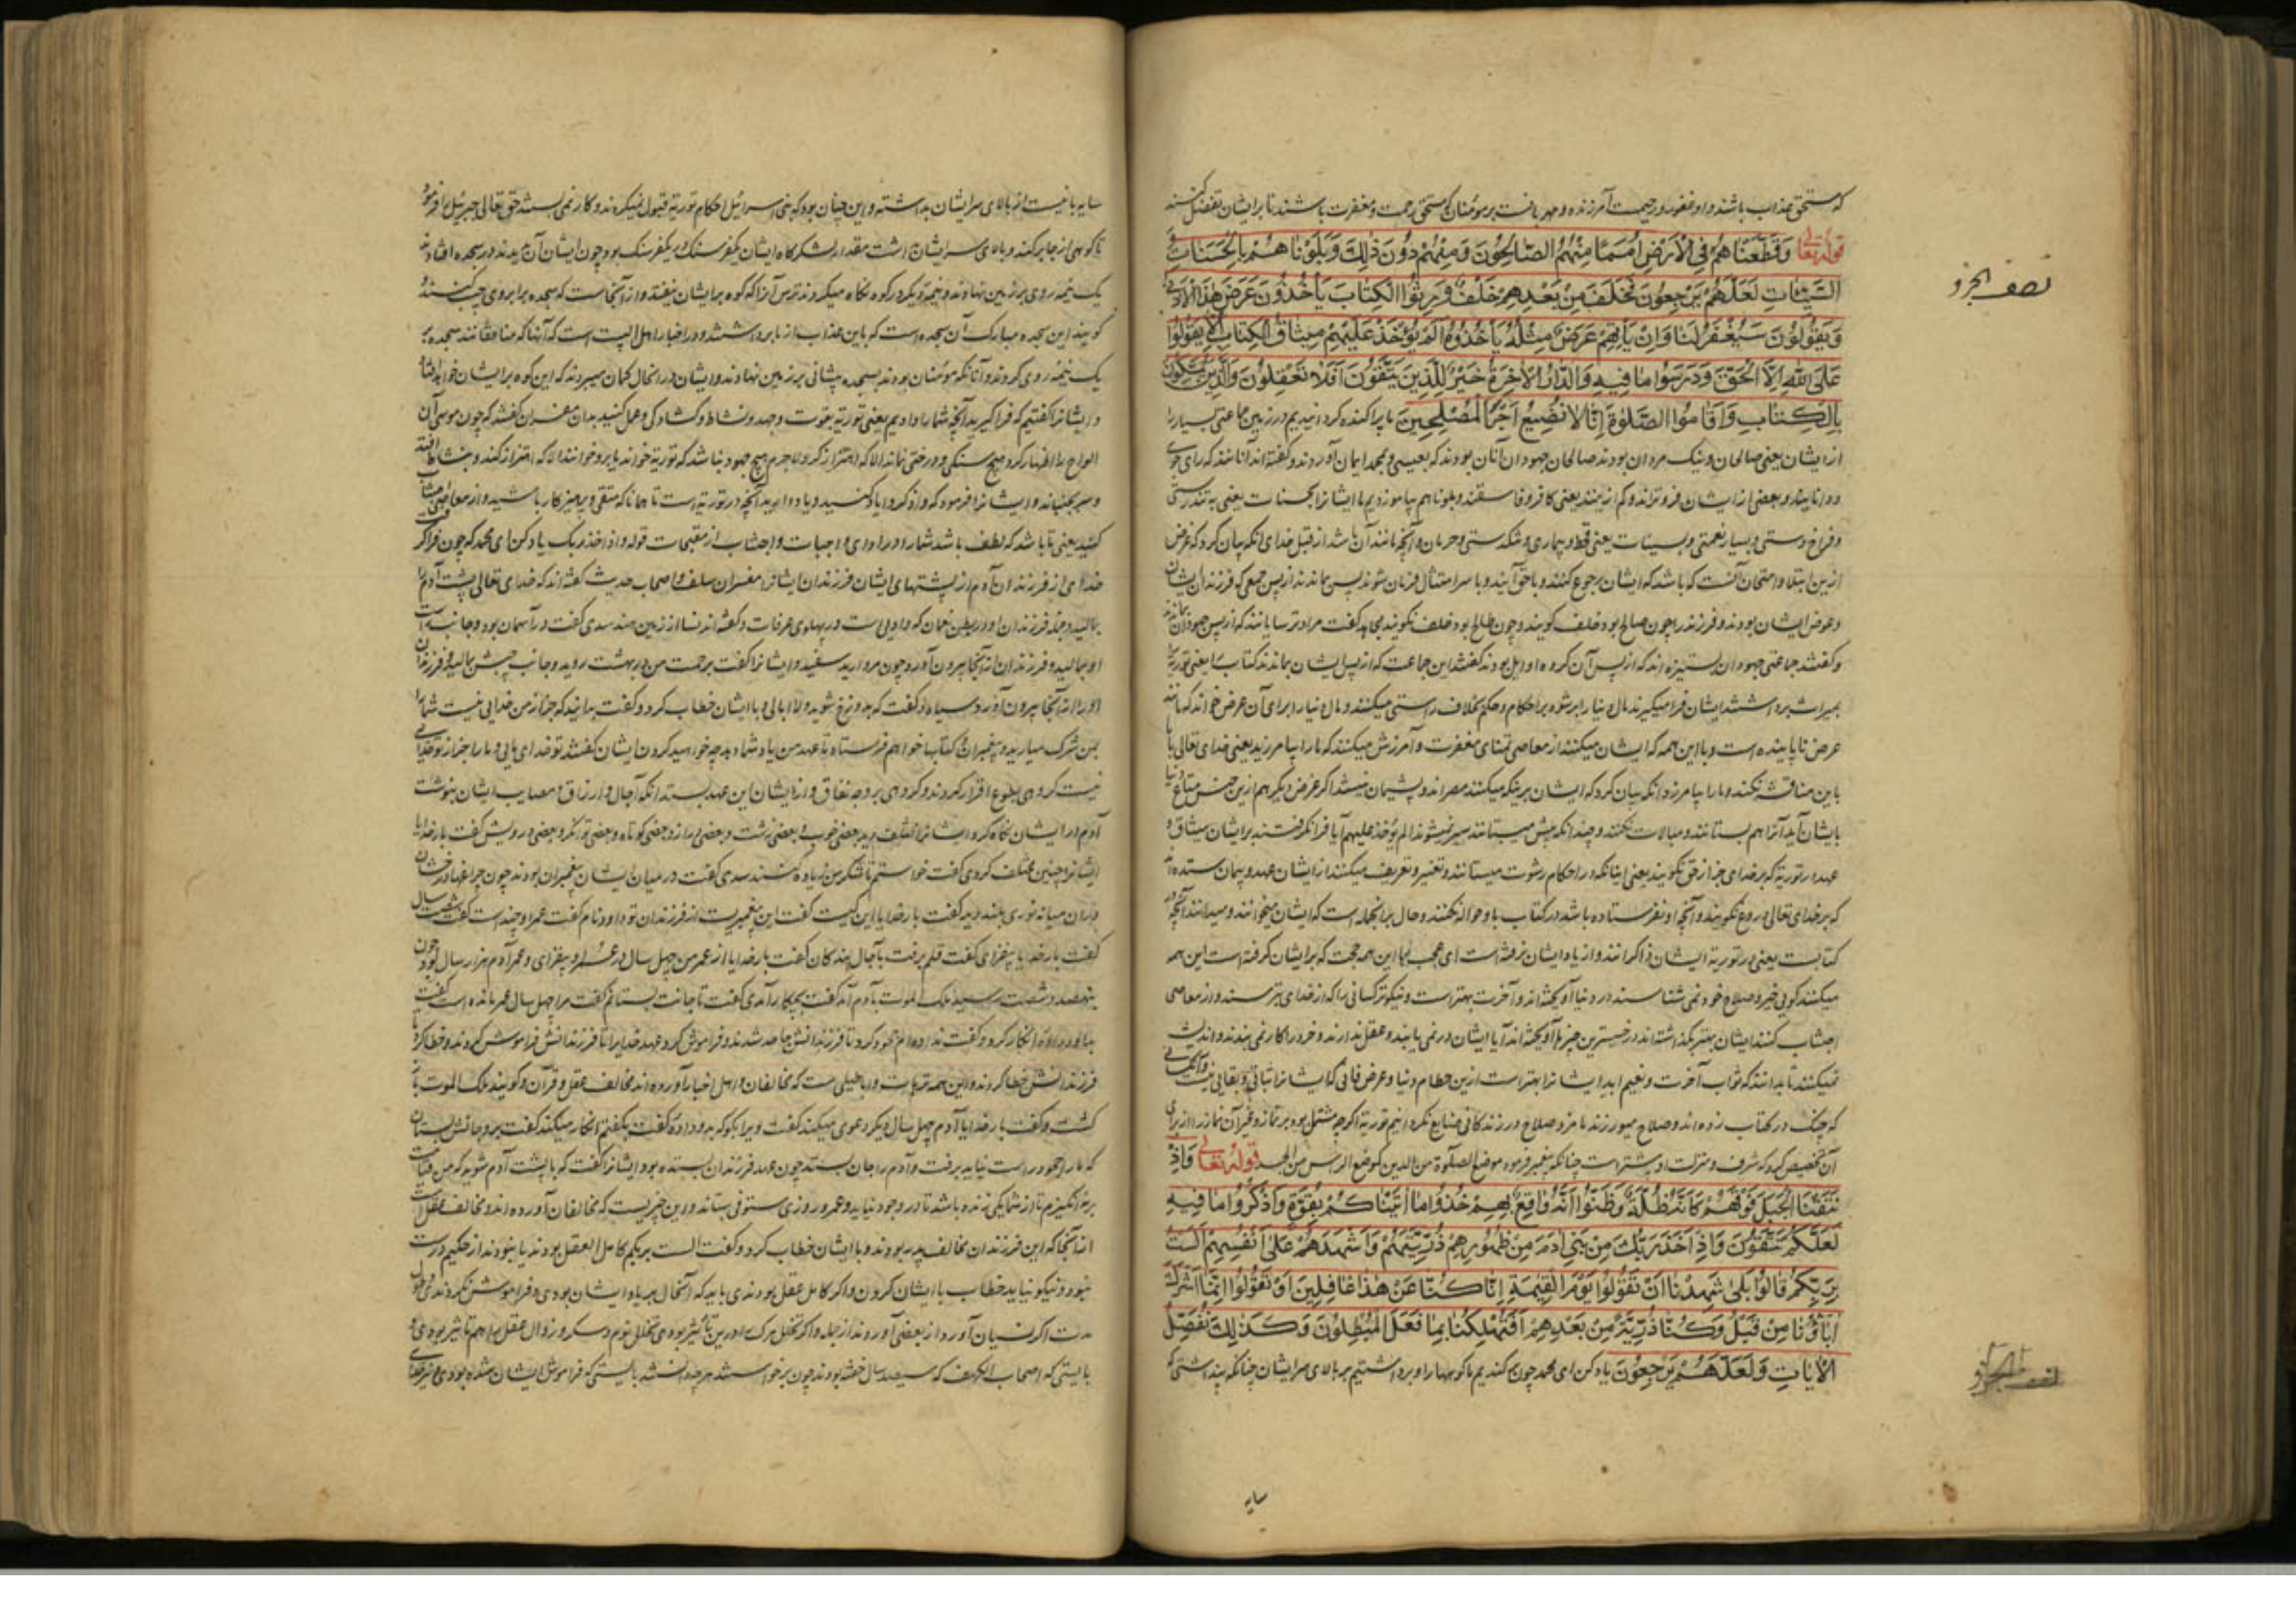 که مستحق عذاب باشند و او غفور و رحیمست آمرزنده و مهربانست بر مومنان که مستحق رحمت و مغفرت باشند تا بر ایشان تفضل کند
قوله تعالی وَقَطَّعْنَاهُمْ فِي الْأَرْضِ أُمَمًا مِنْهُمُ الصَّالِحُونَ وَمِنْهُمْ دُونَ ذَلِكَ وَبَلَوْنَاهُمْ بِالْحَسَنَاتِ وَ
السَّيِّئَاتِ لَعَلَّهُمْ يَرْجِعُونَ فَخَلَفَ مِنْ بَعْدِهِمْ خَلْفٌ وَرِثُوا الْكِتَابَ يَأْخُذُونَ عَرَضَ هَذَا الْأَدْنَى
وَيَقُولُونَ سَيُغْفَرُ لَنَا وَإِنْ يَأْتِهِمْ عَرَضٌ مِثْلُهُ يَأْخُذُوهُ أَلَمْ يُؤْخَذْ عَلَيْهِمْ مِيثَاقُ الْكِتَابِ أَلَّا يَقُولُوا
عَلَى اللَّهِ إِلَّا الْحَقَّ وَدَرَسُوا مَا فِيهِ وَالدَّارُ الْآخِرَةُ خَيْرٌ لِلَّذِينَ يَتَّقُونَ أَفَلَا تَعْقِلُونَ وَالَّذِينَ يُمَسِّكُونَ
بِالْكِتَابِ وَأَقَامُوا الصَّلَوةَ إِنَّا لَا نُضِيعُ أَجْرَ الْمُصْلِحِينَ ما پراکنده گردانیدیم در زمین جماعتی بسیار را
از ایشان یعنی صالحان و نیک مردان بودند صالحان جهودان آنان بودند که بعیسی و محمد ایمان آوردند و گفته‌اند آنانند که
و بعضی از ایشان فروتراند و کم ازینند یعنی کافر و فاسقند و بلوناهم بیازمودیم ما ایشانرا بحسنات یعنی بتندرستی
و فراخ دستی و بسیار نعمتی و بسیئات یعنی قحط و بیماری و تنگدستی و حرمان و آنچه مانند آن باشد از قبل خدای آنگه بیان کرد که غرض
ازین ابتلا و امتحان آنست که باشد که ایشان رجوع کنند و باحق آیند و با سر امتثال فرمان شوند پس بماندند از پس جمعی که فرزندان ایشان
و عوض ایشان بودند و فرزند را چون صالح بود خلف گویند و چون طالح بود خلف گویند مجاهد گفت مراد ترسایانند که از پس جهودان
و گفتند جماعتی جهودان که از پس آن گروه اوایل بودند گفتند این جماعت که از پس ایشان بماندند کتاب را یعنی توریة
بمیراث برداشتند ایشان فرامیگیرند مال دنیا را برشوه بر احکام و حکم بخلاف راستی میکنند و مال دنیا را برای آن عرض خواند که مانند
عرض ناپاینده است و با این همه که ایشان میکنند از معاصی تمنای مغفرت و آمرزش میکنند که ما را بیامرزند یعنی خدای تعالی با ما
باین مناقشه نکند و ما را بیامرزد آنگه بیان کرد که ایشان برینکه میکنند مصراند و پشیمان نیستند اگر عرض دیگر هم ازین جنس متاع دنیا
بایشان آید آنرا هم بستانند و مبالات نکنند و چندانکه بیش میستانند سیر نمیشوند الم یؤخذ علیهم آیا فرا نگرفتند بر ایشان میثاق و
عهد در توریة که بر خدای جز از حق نگویند یعنی اینانکه در احکام رشوت میستانند و تغییر و تحریف میکنند از ایشان عهد و پیمان ستده‌اند
که بر خدای تعالی دروغ نگویند و آنچه او نفرستاده باشد در کتاب با او حواله نکنند و حال برانجمله است که ایشان میخوانند و میدانند آنچه در
کتابست یعنی در توریة ایشان ذاکرانند و از یاد ایشان نرفته است ای عجب با این همه حجت که بر ایشان گرفته است این همه
میکنند گویی خیر و صلاح خود نمی شناسند در دنیا آویخته‌اند و آخرت بهتر است و نیکوتر کسانی را که از خدای بترسند و از معاصی
اجتناب کنند ایشان بهتر بگذاشته‌اند در خسترین چیزها آویخته‌اند آیا ایشان در نمی یابند و عقل ندارند و خرد را کار نمی بندند و اندیشه
نمیکنند تا بدانند که ثواب آخرت و نعیم ابد ایشانرا بهتر است ازین حطام دنیا و عرض فانی که ایشانرا ثباتی و بقایی نیست و آنکسانی
که چنگ در کتاب زده‌اند و صلاح میورزند ما مزد صلاح ورزندگان ضایع نگردانیم توریة اگرچه مشتمل بود بر نماز و غیر آن نماز را از برای
آن تخصیص کرد که شرف و منزلت او بیشترست چنانکه پیغمبر فرمود موضع الصلوة من الدین کموضع الراس من الجسد قوله تعالی وَإِذْ
نَتَقْنَا الْجَبَلَ فَوْقَهُمْ كَأَنَّهُ ظُلَّةٌ وَظَنُّوا أَنَّهُ وَاقِعٌ بِهِمْ خُذُوا مَا آتَيْنَاكُمْ بِقُوَّةٍ وَاذْكُرُوا مَا فِيهِ
لَعَلَّكُمْ تَتَّقُونَ وَإِذْ أَخَذَ رَبُّكَ مِنْ بَنِي آدَمَ مِنْ ظُهُورِهِمْ ذُرِّيَّتَهُمْ وَأَشْهَدَهُمْ عَلَى أَنْفُسِهِمْ أَلَسْتُ
بِرَبِّكُمْ قَالُوا بَلَى شَهِدْنَا أَنْ تَقُولُوا يَوْمَ الْقِيمَةِ إِنَّا كُنَّا عَنْ هَذَا غَافِلِينَ أَوْ تَقُولُوا إِنَّمَا أَشْرَكَ
آبَاؤُنَا مِنْ قَبْلُ وَكُنَّا ذُرِّيَّةً مِنْ بَعْدِهِمْ أَفَتُهْلِكُنَا بِمَا فَعَلَ الْمُبْطِلُونَ وَكَذَلِكَ نُفَصِّلُ
الْآيَاتِ وَلَعَلَّهُمْ يَرْجِعُونَ یاد کن ای محمد چون بکندیم ما کوهها را و برداشتیم بر بالای سر ایشان چنانکه پنداشتی که
سایه
نصف الجزو
نصف الجزو
سایه بانیست از بالای سر ایشان بداشته و این چنان بود که بنی اسرائیل احکام توریة قبول نمیکردند و کار نمی بستند حق تعالی جبرئیل را فرمود
تا کوهی از جا برکند و بالای سر ایشان داشت مقدار لشکرگاه ایشان یکفرسنگ در یکفرسنگ بود چون ایشان آن بدیدند در سجده افتادند
یک نیمه روی بر زمین نهادند و بنیمه دیگر در کوه نگاه میکردند ترس آنرا که کوه بر ایشان نیفتد و از آنجاست که سجده بر ابروی چپ کنند و
گویند این سجده مبارک آن سجده است که باین عذاب از ما برداشتند و در اخبار اهل البیت است که آنها که منافقانند سجده بر
یک نیمه روی کردند و آنانکه مومنان بودند بسجده پیشانی بر زمین نهادند و ایشان در انحال گمان میبردند که این کوه بر ایشان خواهد افتاد
و ایشانرا گفتیم که فراگیرید آنچه شما را دادیم یعنی توریة بقوت و جهد و نشاط و گشادگی و عمل کنید بدان مفسران گفتند که چون موسی آن
الواح را اظهار کرد هیچ سنگی و درختی نماند الا که اهتزاز کرد و لاجرم هیچ جهود نباشد که توریة خواند یا برو خوانند الا که اهتزاز کند و بنشاط افتد
و سر بجنباند و ایشانرا فرمود که واذکروا یاد کنید و یاد دارید آنچه در توریة است تا همانا که متقی و پرهیزکار باشید و از معاصی اجتناب
کنید یعنی تا باشد که لطف باشد شما را در ادای واجبات و اجتناب از مقبحات قوله واذ اخذ ربک یاد کن ای محمد که چون فراگرفت
خدای از فرزندان آدم از پشتهای ایشان فرزندان ایشانرا مفسران سلف و اصحاب حدیث گفته‌اند که خدای تعالی پشت آدم را
بمالید و جمله فرزندان او در بطن نعمان که وادیی است در پهلوی عرفات و گفته‌اند از زمین هند سدی گفت در آسمان بود و جانب راست
او بمالید و فرزندان از آنجا بیرون آورد چون مروارید سفید و ایشانرا گفت برحمت من در بهشت روید و جانب چپش بمالید و فرزندان
او را از آنجا بیرون آورد سیاه و گفت که بدوزخ شوید و لا ابالی و با ایشان خطاب کرد و گفت بدانید که جز از من خدایی نیست شما را
بمن شرک میارید و پیغمبران و کتابها خواهم فرستاد تا عهد من یاد شما دهند چه خواهید کردن ایشان گفتند تو خدای مایی و ما را جز از تو خدایی
نیست گروهی بطوع اقرار کردند و گروهی بر وجه نفاق و از ایشان این عهد بستد آنگه آجال و ارزاق و مصایب ایشان بنوشت
آدم در ایشان نگاه کرد ایشانرا مختلف دید بعضی خوب و بعضی زشت و بعضی دراز و بعضی کوتاه و بعضی توانگر و بعضی درویش گفت بارخدایا
ایشانرا چنین مختلف کردی گفت خواستم تا شکر من زیاده کنند سدی گفت در میان ایشان پیغمبران بودند چون چراغها درخشان
در آن میانه نوری بلند دید گفت بارخدایا این کیست گفت این پیغمبریست از فرزندان تو داود نام گفت عمر او چندست گفت شصت سال
گفت بارخدایا بیفزای گفت قلم برفت بآجال بندگان گفت بارخدایا از عمر من چهل سال در عمر او بیفزای و عمر آدم هزار سال بود چون
بنهصد و شصت رسید ملک الموت بآدم آمد گفت بچه کار آمدی گفت تا جانت بستانم گفت مرا چهل سال عمر مانده است گفت
بداود داده انکار کرد و گفت نداده‌ام جحود کرد تا فرزندانش جاحد شدند و فراموش کرد عهد خدایرا تا فرزندانش فراموش کردند و خطا کرد تا
فرزندانش خطا کردند و این همه ترهات و اباطیلی ست که مخالفان و اهل اخبار آورده‌اند مخالف عقل و قرآن و گویند ملک الموت باز
گشت و گفت بارخدایا آدم چهل سال دیگر دعوی میکند گفت ویرا بگو که بداود داده گفت بگفتم انکار میکند گفت برو جانش بستان
که ما را جحود راست نیاید برفت و آدم را جان بستد چون عهد فرزندان بستده بود ایشانرا گفت که با پشت آدم شوید که من قیامت
برنه انگیزم تا از شما یکی زنده باشد تا در وجود نیاید و عمر و روزی مستوفی بستاند و این چیزیست که مخالفان آورده‌اند و مخالف عقل است
از آنجا که این فرزندان مخالف پدر بودند و با ایشان خطاب کرد و گفت الست بربکم کامل العقل بودند یا نبودند از حکیم درست
نبود و نیکو نیاید خطاب با ایشان کردن و اگر کامل عقل بودندی باید که آنحال بر یاد ایشان بودی و فراموش نکردندی طول
مدت اگر نسیان آورد از بعضی آورد نه از جمله و اگر تخلل مرگ را درین تاثیر بودی تخلل نوم و سکر و زوال عقل را هم تاثیر بودی و
بایستی که اصحاب الکهف که سیصد سال خفته بودند چون برخواستند هر چه دانستند بایستی که فراموش ایشان شده بودی